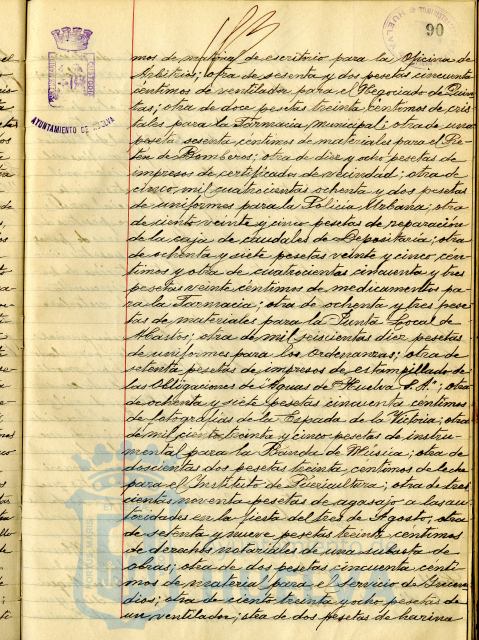 90
AYUNTAMIENTO DE HUELVA
mos de material de escritorio para la Oficina de
Arbitrios; otra de sesenta y dos pesetas cincuenta
centimos de ventilador para el Negociado de Quin-
tas; otra de doce pesetas treinta centimos de cris-
tales para la Farmacia municipal; otra de una
peseta sesenta centimos de materiales para el Re-
ten de Bomberos; otra de diez y ocho pesetas de
impresos de certificados de vecindad; otra de
cinco mil cuatrocientas ochenta y dos pesetas
de uniformes para la Policia Urbana; otra
de ciento veinte y cinco pesetas de reparación
de la caja de caudales de Depositaria; otra
de ochenta y siete pesetas veinte y cinco cen-
timos y otra de cuatrocientas cincuenta y tres
pesetas veinte centimos de medicamentos pa-
ra la Farmacia; otra de ochenta y tres pese-
tas de materiales para la Junta Local de
Abastos; otra de mil seiscientas diez pesetas
de uniformes para los Ordenanzas; otra de
setenta pesetas de impresos de estampillado de
las Obligaciones de "Aguas de Huelva S.A."; otra
de ochenta y siete pesetas cincuenta centimos
de fotografias de la Espada de la Victoria; otra
de mil ciento treinta y cinco pesetas de instru-
mental para la Banda de Música; otra de
doscientas dos pesetas treinta centimos de leche
para el Instituto de Puericultura; otra de tres
cientas noventa pesetas de agasajo a las au-
toridades en la fiesta del tres de Agosto; otra
de setenta y nueve pesetas treinta centimos
de derechos notariales de una subasta de
obras; otra de dos pesetas cincuenta centi
mos de material para el servicio de Incen-
dios; otra de ciento treinta y ocho pesetas de
un ventilador; otra de dos pesetas de harina